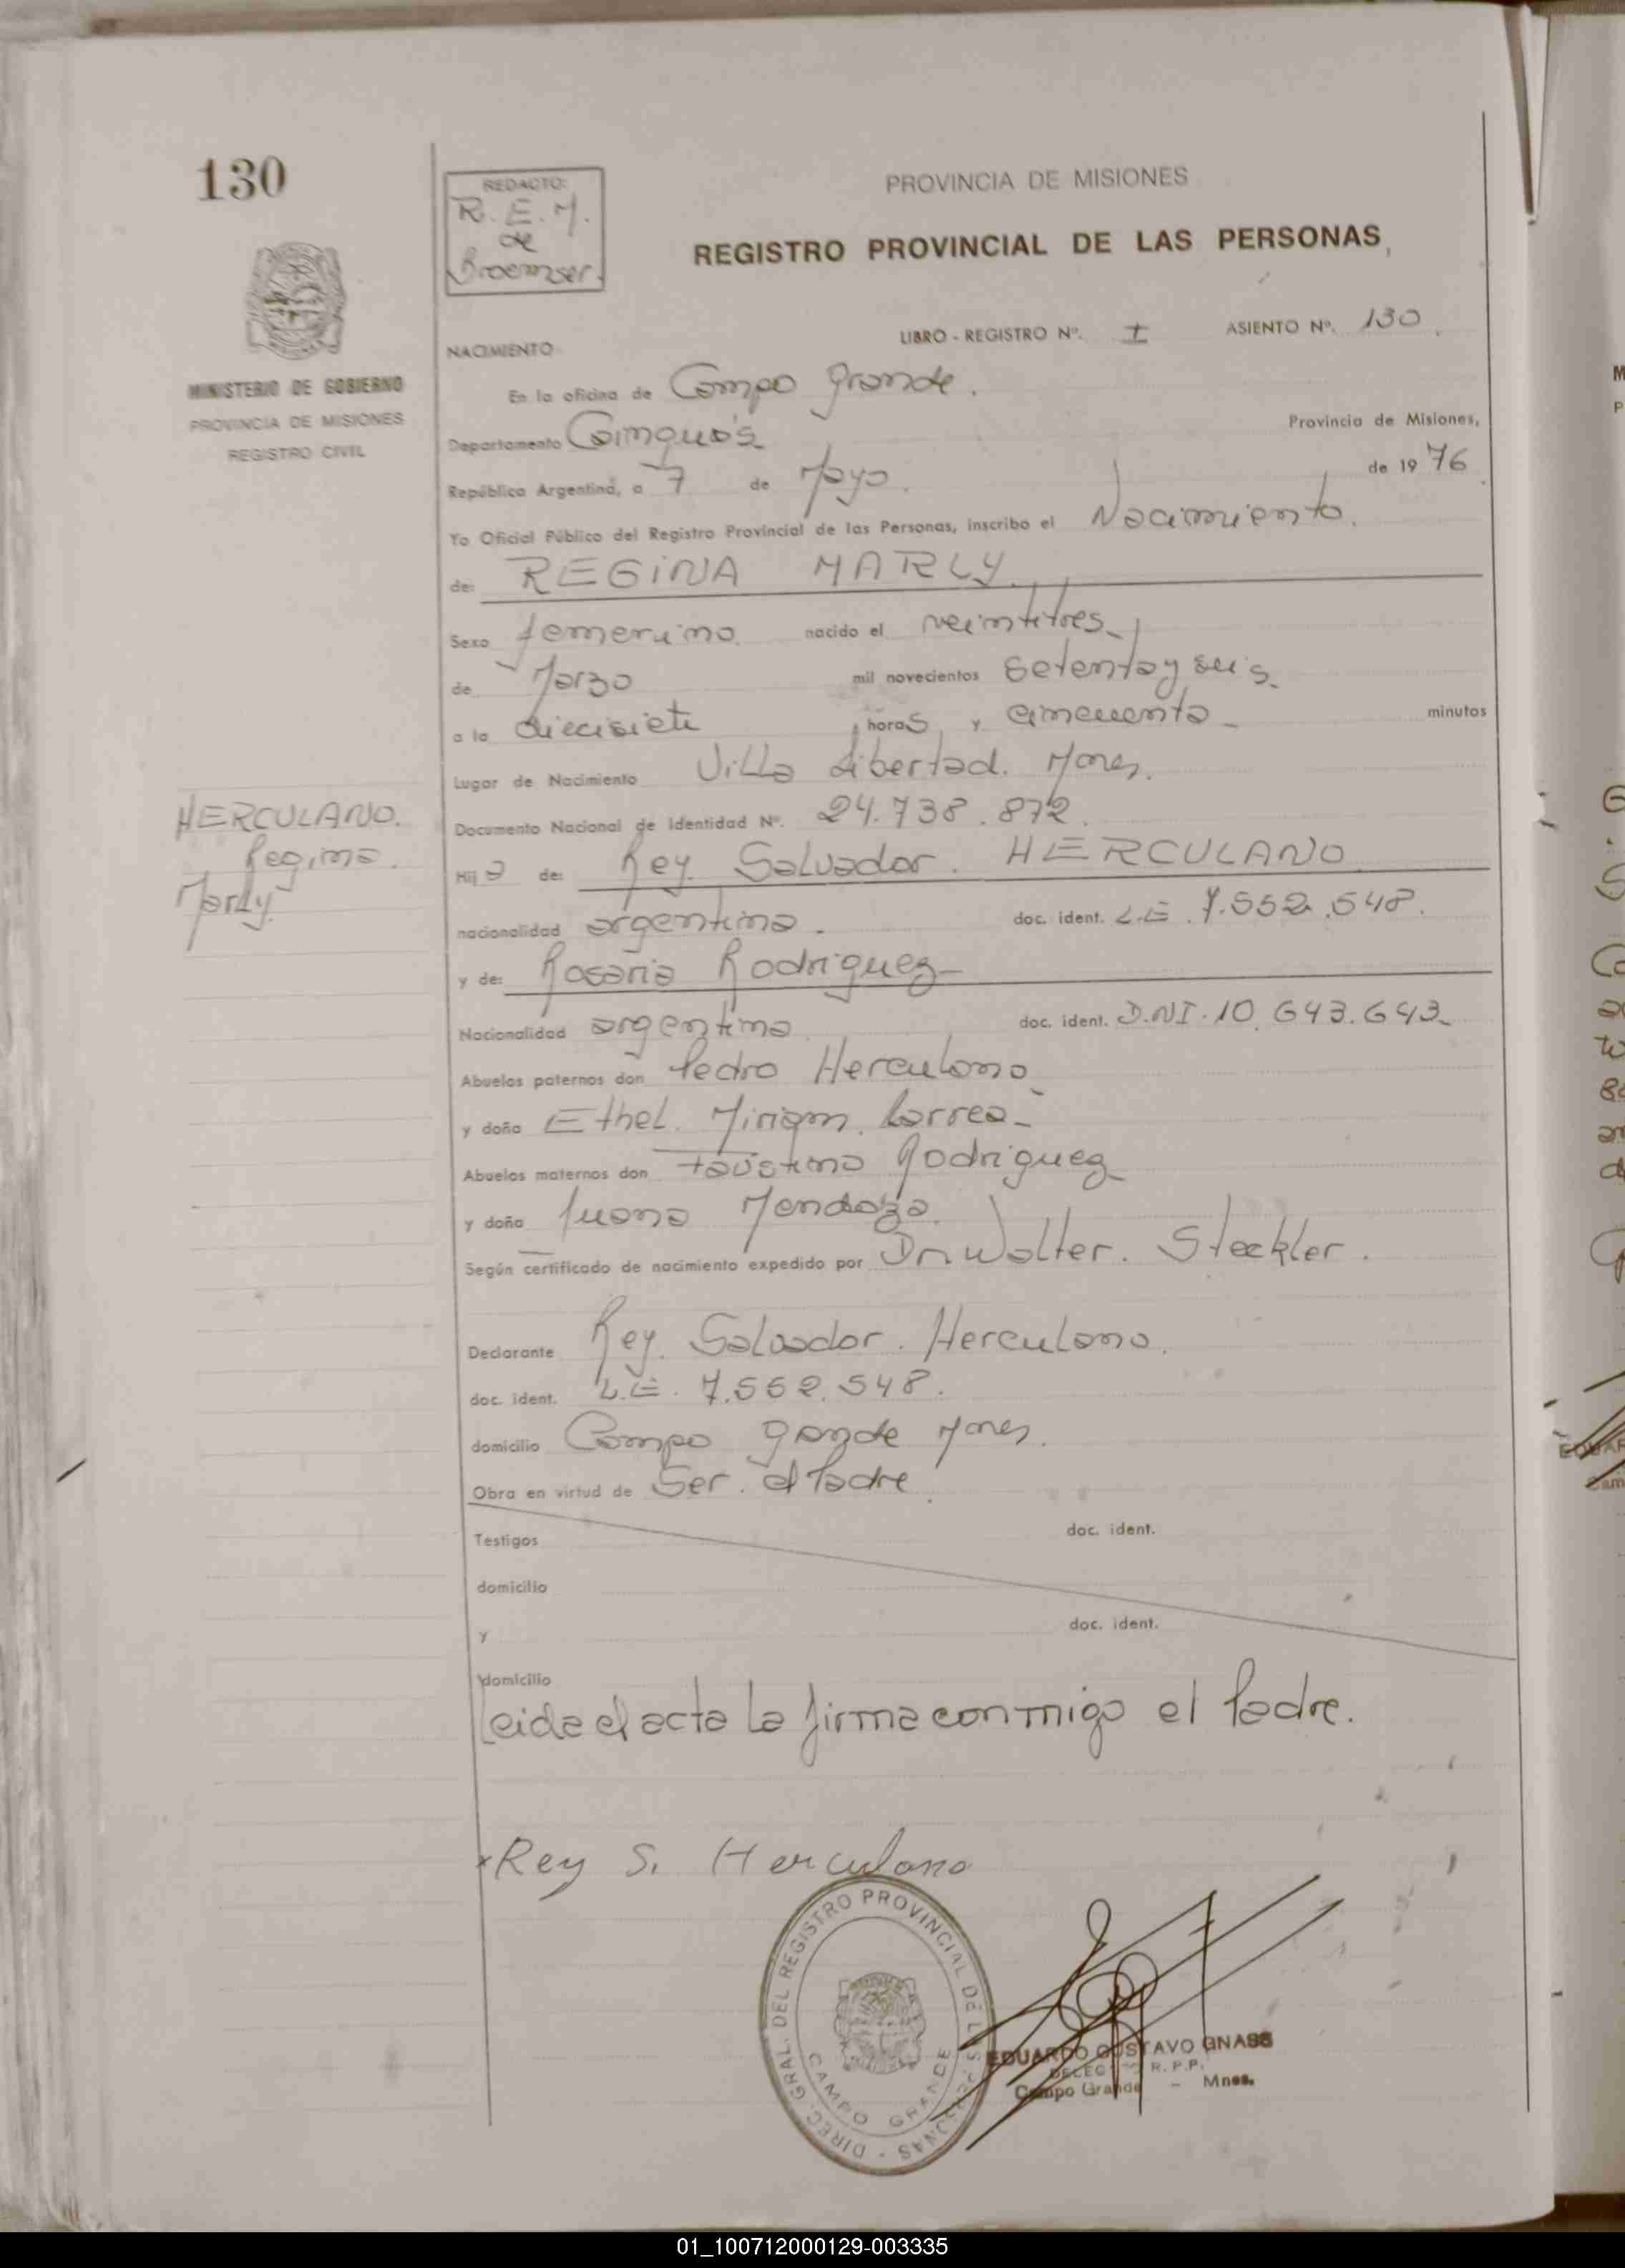 130
REDACTO:
R. E. M.
de
Broemser.
PROVINCIA DE MISIONES
REGISTRO PROVINCIAL DE LAS PERSONAS
MINISTERIO DE GOBIERNO
PROVINCIA DE MISIONES
REGISTRO CIVIL
LIBRO - REGISTRO Nº. I ASIENTO Nº. 130.
NACIMIENTO
En la oficina de Campo Grande.
Departamento Cainguás Provincia de Misiones,
República Argentina, a 7 de Mayo. de 19 76
Yo Oficial Público del Registro Provincial de las Personas, inscribo el Nacimiento.
de: REGINA MARLY.
Sexo femenino. nacido el veintitres
de Marzo mil novecientos setenta y seis
a la diecisiete horas y cincuenta minutos
Lugar de Nacimiento Villa Libertad. Mnes.
Documento Nacional de Identidad Nº. 24.738.872.
HERCULANO.
Regina.
Marly
Hija de: Rey. Salvador. HERCULANO
nacionalidad argentina. doc. ident. L.E. 7.552.548.
y de: Rosaria Rodriguez
Nacionalidad argentina doc. ident. D.NI. 10.643.643
Abuelos paternos don Pedro Herculano
y doña Ethel. Miriam. Correa
Abuelos maternos don Faustino Rodriguez
y doña Juana Mendoza.
Según certificado de nacimiento expedido por Dr. Walter. Steckler.
Declarante Rey. Salvador. Herculano.
doc. ident. L.E. 7.552.548.
domicilio Campo Grande Mnes.
Obra en virtud de Ser. el Padre.
Testigos doc. ident.
domicilio
y doc. ident.
domicilio
Leida el acta la firma conmigo el Padre.
Rey S. Herculano
DIREC. GRAL. DEL REGISTRO PROVINCIAL DE LAS PERSONAS
CAMPO GRANDE
EDUARDO GUSTAVO GNASS
R. P. P.
Campo Grande - Mnes.
01_100712000129-003335